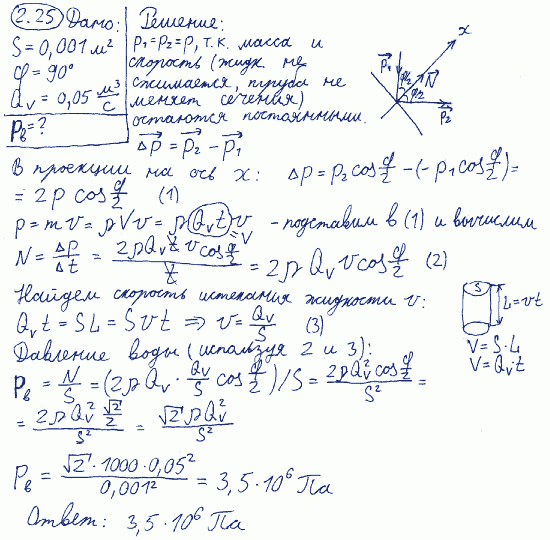 2.25 Дано:
S = 0,001 м²
φ = 90°
Q_v = 0,05 м³/с
P_в = ?
Решение:
p₁ = p₂ = p, т.к. масса и
скорость (жидк не
сжимается, труба не
меняет сечения)
остаются постоянными.
Δp = p₂ - p₁
x
p₁
φ/2
φ/2
N
p₂
В проекции на ось x: Δp = p₂ cos φ/2 - (-p₁ cos φ/2) =
= 2p cos φ/2 (1)
p = mv = ρVv = ρ Q_v t v - подставим в (1) и вычислим
= V
N = Δp/Δt = 2ρQ_v t v cos φ/2 / t = 2ρ Q_v v cos φ/2 (2)
Найдем скорость истекания жидкости v:
Q_v t = SL = Svt ⇒ v = Q_v/S (3)
S
L = vt
V = S·L
V = Q_v·t
Давление воды (используя 2 и 3):
P_в = N/S = (2ρ Q_v · Q_v/S cos φ/2)/S = 2ρQ_v² cos φ/2 / S² =
= 2ρQ_v² √2/2 / S² = √2 ρQ_v² / S²
P_в = √2 · 1000 · 0,05² / 0,001² = 3,5 · 10⁶ Па
Ответ: 3,5 · 10⁶ Па